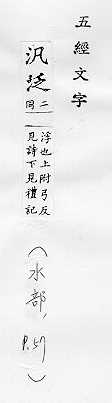 五經文字
汎泛
二同
浮也上附弓反
見詩下見禮記
（水部，
P.57）